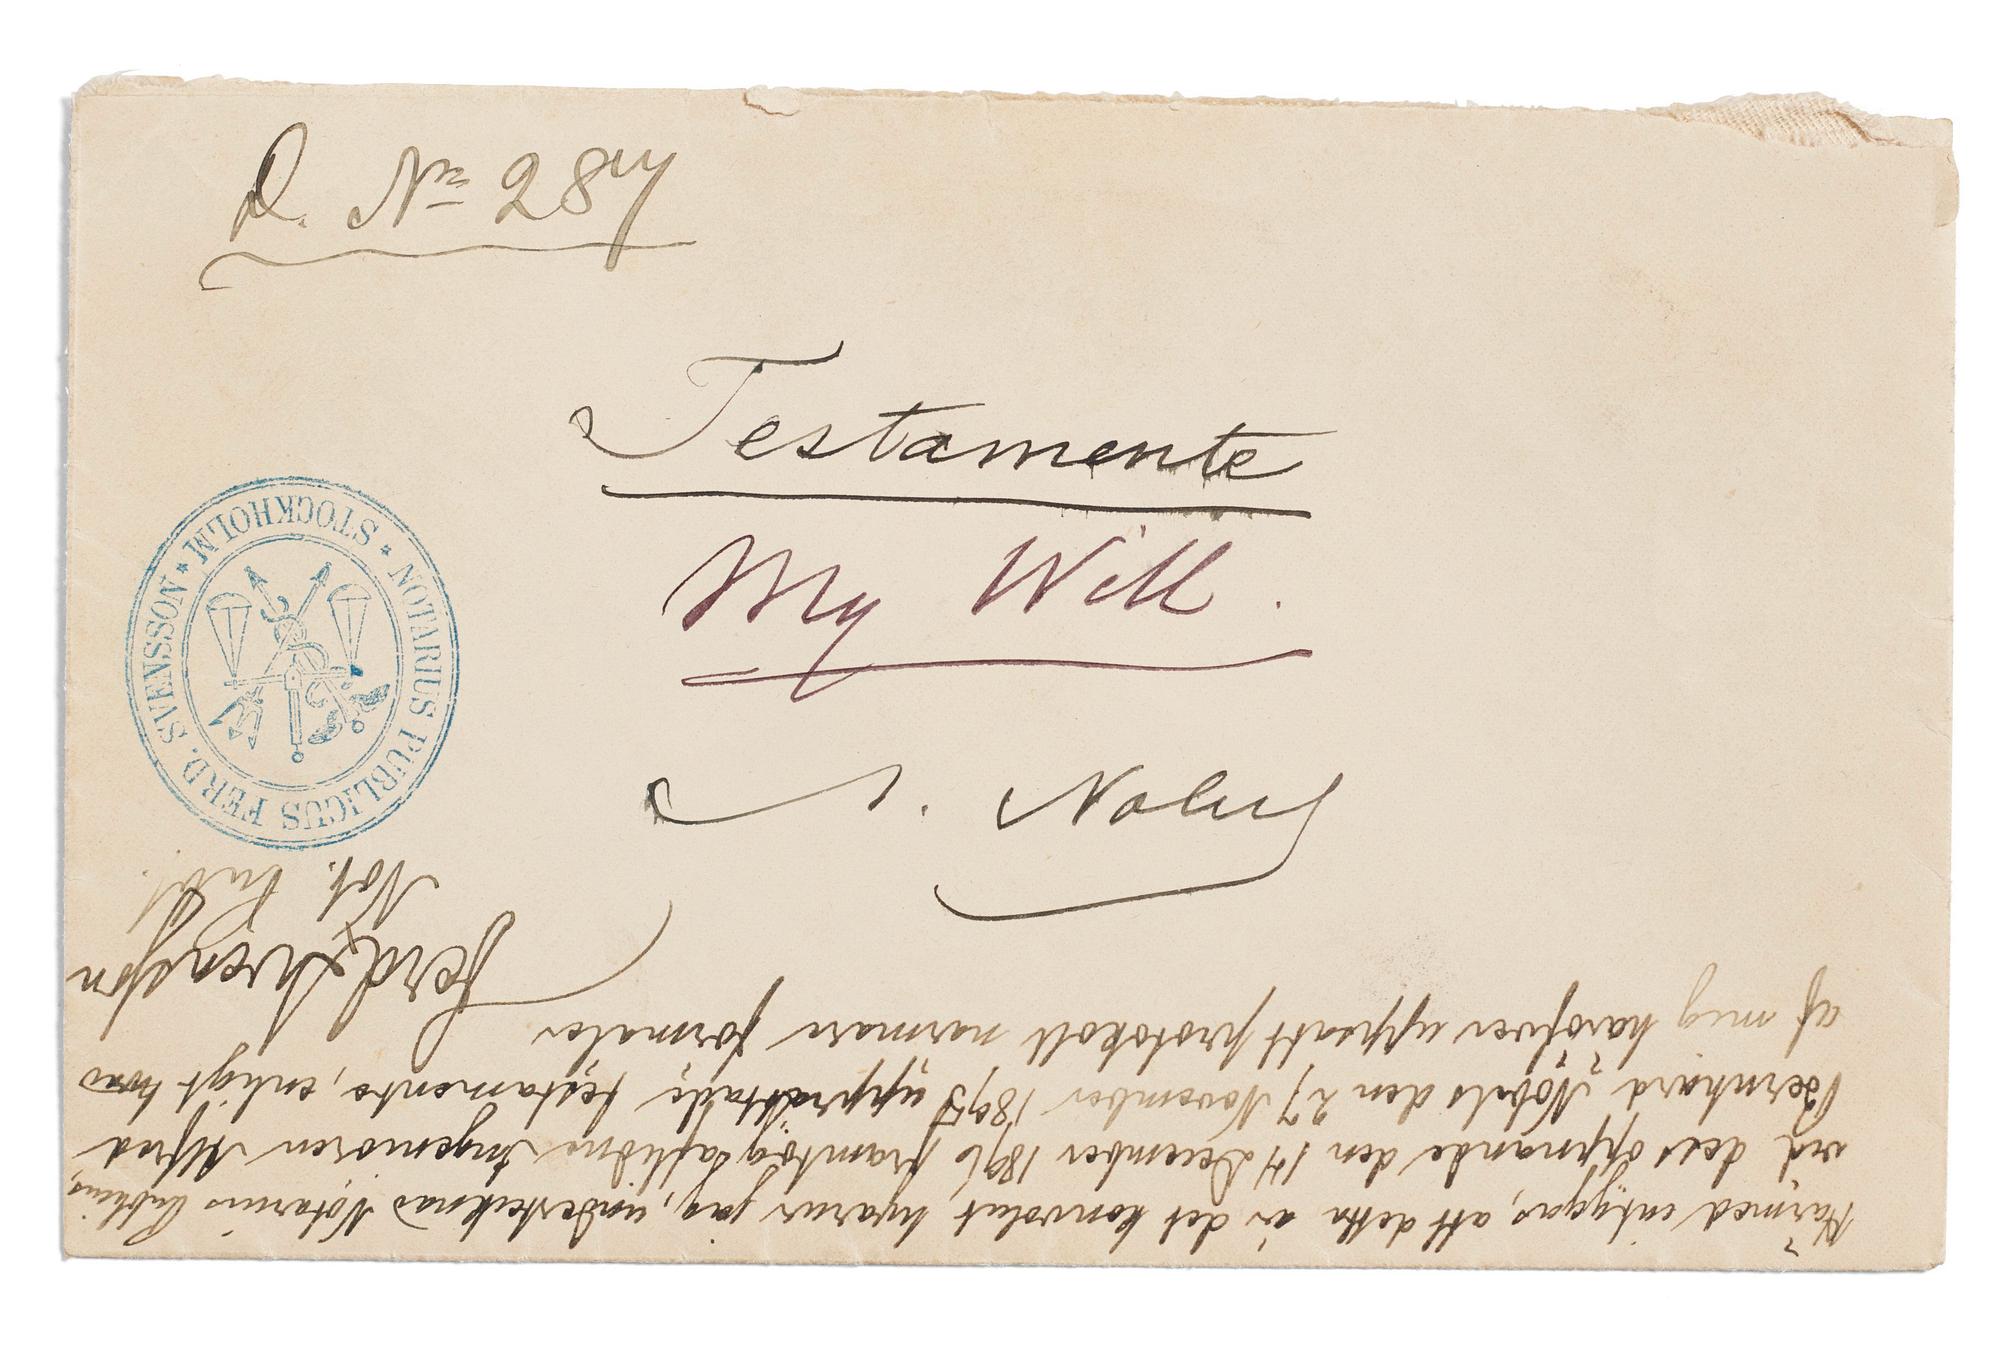 D. No 28
Testamente
My Will.
A. Nobel
NOTARIUS PUBLICUS FERD. SVENSSON
* STOCKHOLM *
Härmed intygas, att detta är det konvolut hvarur jag, undertecknad Notarius Publicus,
vid dess öppnande den 14 December 1896 framtog aflidne Ingeniören Alfred
Bernhard Nobels den 27 November 1895 upprättade testamente, enligt hvad
af mig häröfver uppsatt protokoll närmare förmäler
Ferd Svensson
Not. Publ.